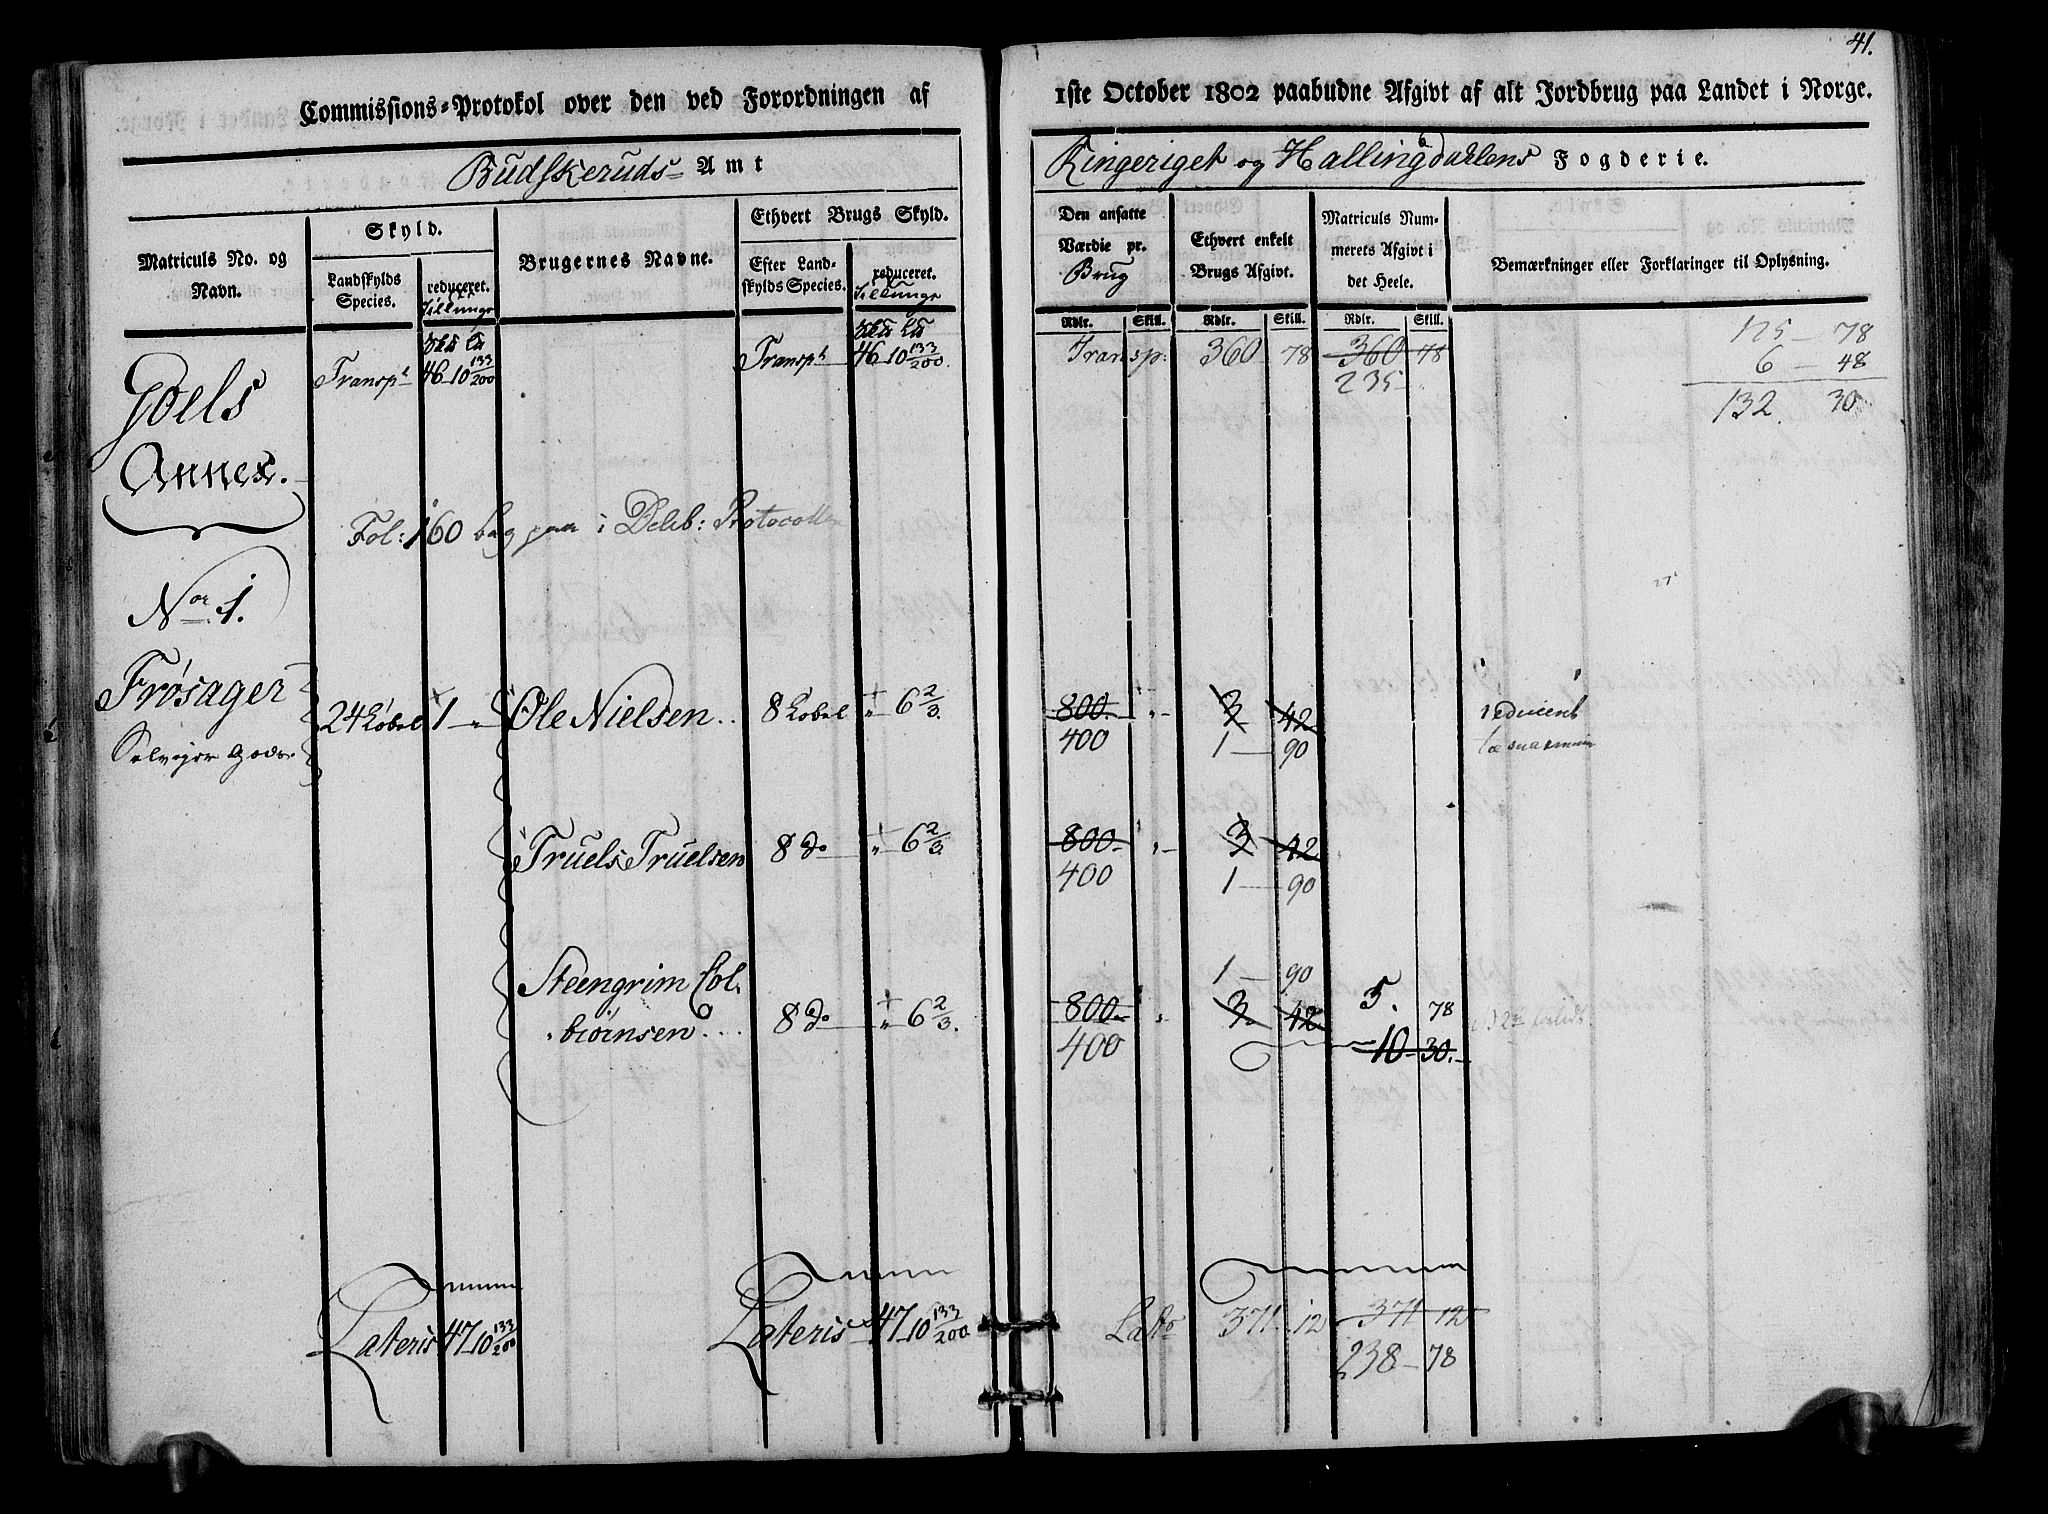 41.
Commissions-Protokol over den ved Forordningen af
1ste October 1802 paabudne Afgivt af alt Jordbrug paa Landet i Norge.
Budskeruds Amt
Ringeriget og Hallingdahlens Fogderie.
Matriculs No. og Navn.
Skyld.
Landskylds Species.
reduceret. Tillunge
Brugernes Navne.
Ethvert Brugs Skyld.
Efter Landskylds Species.
reduceret. Tillunge
Den ansatte Værdie pr. Brug
Ethvert enkelt Brugs Afgivt.
Matriculs Nummerets Afgivt i det Heele.
Bemærkninger eller Forklaringer til Oplysning.
Rdlr. Skill. Rdlr. Skill. Rdlr. Skill.
Transpt 46 10 133/200 Transpt 46 10 133/200
Transp: 360 78 360 78
235
125 - 78
6 - 48
132 30
Goels
Annex.
Fol: 160 bag paa i Delib: Protocollen
No 1.
Frøsager
24 Løbel 1 " Ole Nielsen 8 Løbel " 6 2/3 800 " 3 42
400 1 - 90
reduceret
Godz
Truels Truelsen 8 do " 6 2/3 800 " 3 42
400 1 - 90
Steengrim Col-
biørnsen 8 do " 6 2/3. 800 " 3 42
1 - 90
5. 78
400 10 - 30.
Lateris 47 10 133/200 Lateris 47 10 133/200
Lat 371 12 371 12
238 - 78